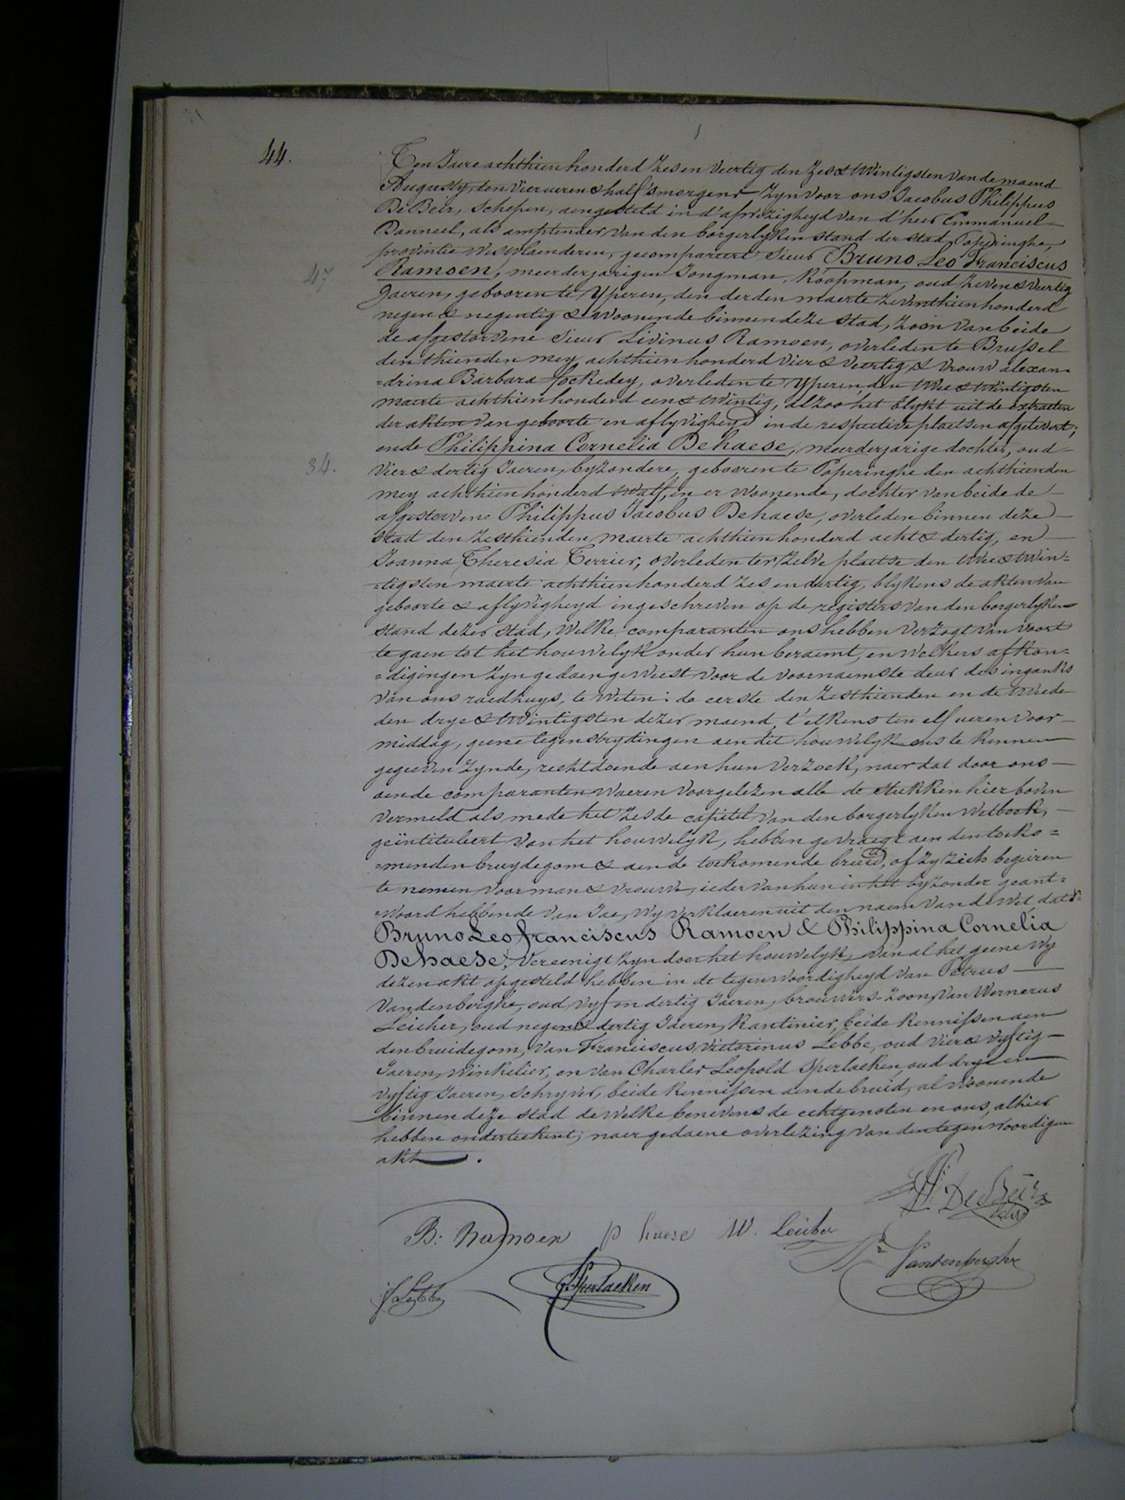 44.
Ten Jaere achthien honderd zes en veertig den zes & twintigsten van de maend
Augusty, ten vier ueren & half 's morgens zyn voor ons Jacobus Philippus
De Beir, schepen, aengesteld in d'afwezigheyd van d'heer Emmanuel
Banneel, als amptenaer van den borgerlyken stand der stad Poperinghe,
provintie Westvlaenderen, gecompareert sieur Bruno Leo Franciscus
47 Ramoen, meerderjarigen Jongman, Koopman, oud zeven & veertig
Jaeren, gebooren te Yperen, den derden maerte zeventhien honderd
negen & negentig & er woonende binnen deze stad, zoon van beide
de afgestorvene sieur Livinus Ramoen, overleden te Brussel
den thienden mey achthien honderd vier & veertig, & vrouw alexan-
=drina Barbara Jockedey, overleden te Yperen den twee & twintigsten
maerte achthien honderd een & twintig, alzoo het blykt uit de extracten
der akten van geboorte en aflyvigheyd in de respective plaetsen afgelevert;
ende Philippina Cornelia Dehaese, meerderjarige dochter, oud
34. vier & dertig Jaeren, byzondere, gebooren te Poperinghe den achthienden
mey achthien honderd twalf, en er woonende, dochter van beide de
afgestorvene Philippus Jacobus Dehaese, overleden binnen deze
stad den zesthienden maerte achthien honderd acht & dertig, en
Joanna Theresia Terrier, overleden ter zelve plaetse den twee & twin-
=tigsten maerte achthien honderd zes en dertig, blykens de akten van
geboorte & aflyvigheyd ingeschreven op de registers van den borgerlyken
stand dezer stad, Welke comparanten ons hebben verzogt van voort
te gaen tot het houwelyk onder hun beraemt, en welkers afkon-
=digingen zyn gedaen geweest voor de voornaemste deur des ingancks
van ons raedhuys, te weten: de eerste den zesthienden en de tweede
den drye & twintigsten dezer maend, t'elkens ten elf ueren voor-
middag, geene tegenstrydingen aen dit houwelyk ons te kennen
gegeven zynde, rechtdoende aen hun verzoek, naer dat door ons
aen de comparanten waeren voorgelezen alle de stukken hier boven
vermeld als mede het zesde capittel van den borgerlyken wetboek,
geintituleert van het houwelyk, hebben gevraegt aen den toeko-
=menden bruydegom & aen de toekomende bruid, of zy zich begeiren
te nemen voor man & vrouwe, ieder van hun in het byzonder geant-
=woord hebbende van Jae, Wy verklaeren uit den naem van de Wet dat
Bruno Leo franciscus Ramoen & Philippina Cornelia
Dehaese, vereenigt zyn door het houwelyk, van al het geene wy
dezen akt opgesteld hebben in de tegenwoordigheyd van Petrus
Vandenberghe, oud vyf en dertig Jaeren, brouwers-zoon, van Wernerus
Leicher, oud negen & dertig Jaeren, Kantinier, beide kennissen aen
den bruidegom, van Franciscus Victorinus Lebbe, oud vier & vyftig
Jaeren, winkelier, en van Charles Leopold Sperlaeken, oud drye en
vyftig Jaeren, schryver, beide kennissen aen de bruid, al woonende
binnen deze stad de welke benevens de echtgenoten en ons, alhier
hebben onderteekent, naer gedaene overlezing van den tegenwoordigen
akt.
De Beir
B: Ramoen p haese W. Leicher
Vandenberghe
f Lebbe Sperlaeken